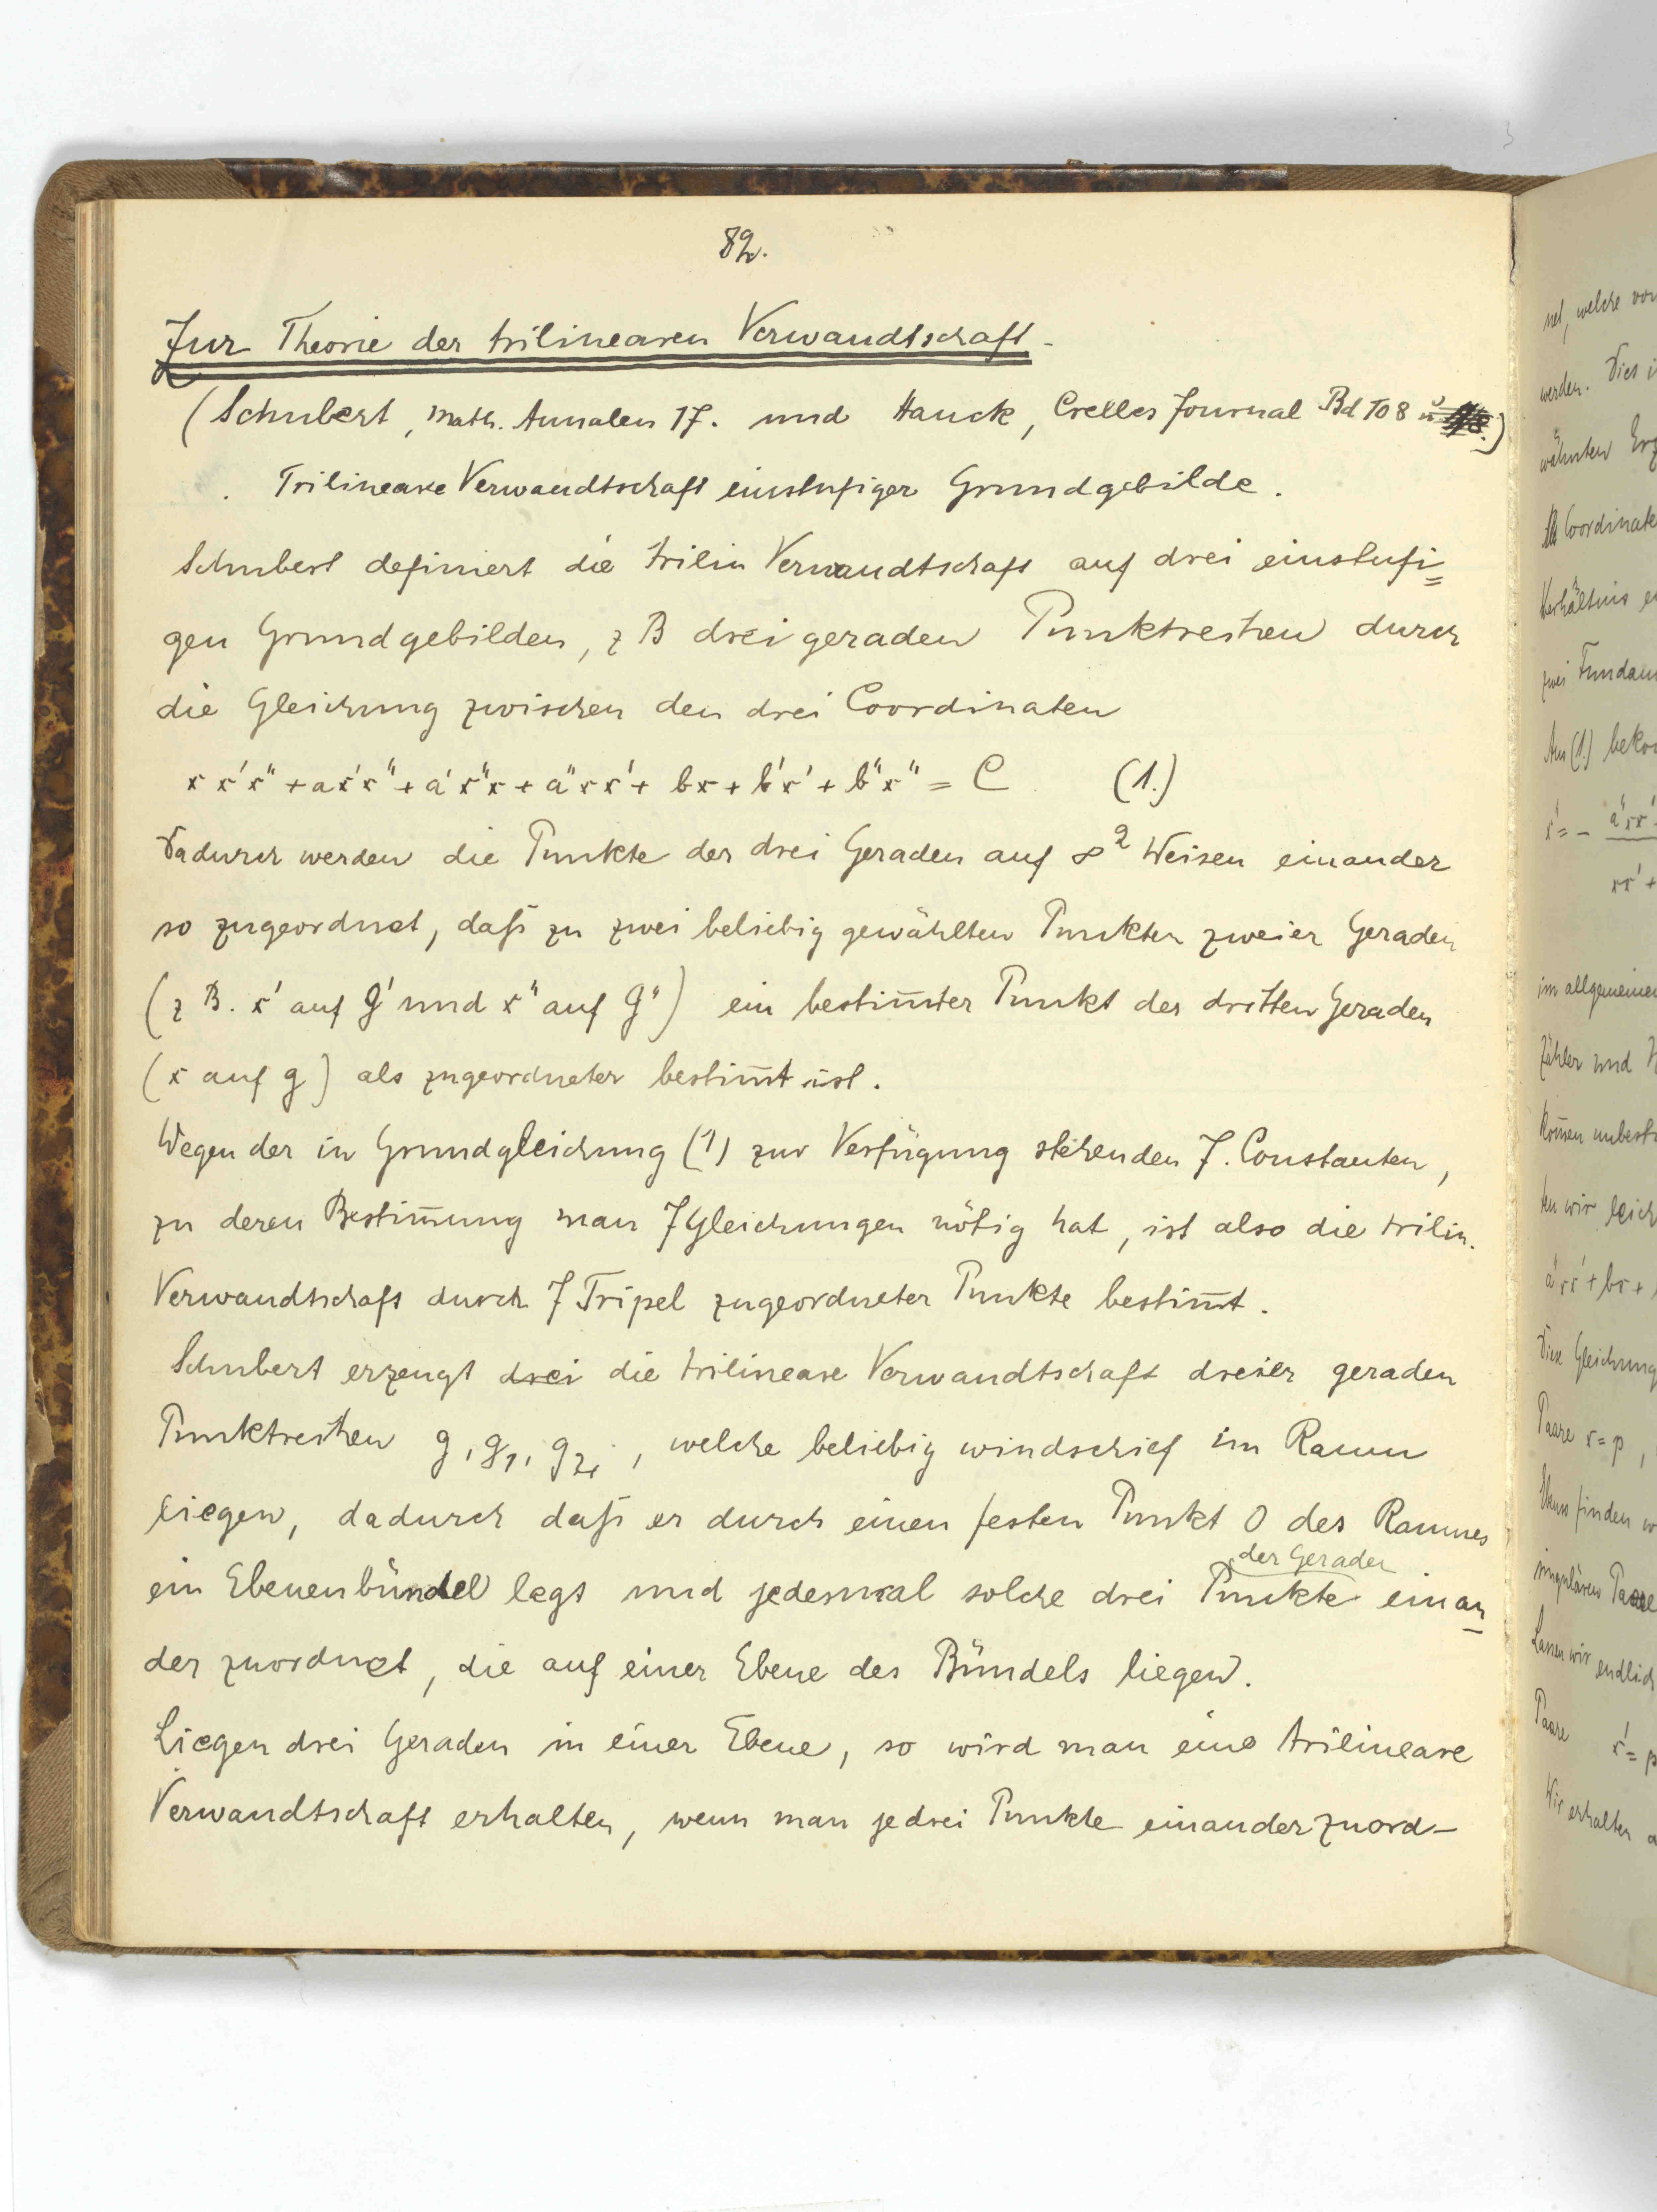 82.
Zur Theorie der trilinearen Verwandtschaft.
(Schubert, Math. Annalen 17. und Hauck, Crelles Journal Bd 108 u.)
Trilineare Verwandtschaft einstufiger Grundgebilde.
Schubert definiert die trilin Verwandtschaft auf drei einstufi=
gen Grundgebilden, z B drei geraden Punktreihen durch
die Gleichung zwischen den drei Coordinaten
x x' x" + a x' x" + a' x" x + a" x x' + b x + b' x' + b" x" = C (1.)
Dadurch werden die Punkte der drei Geraden auf ∞² Weisen einander
so zugeordnet, daß zu zwei beliebig gewählten Punkten zweier Geraden
(z B. x' auf g' und x" auf g") ein bestim̅ter Punkt der dritten Geraden
(x auf g) als zugeordneter bestim̅t ist.
Wegen der in Grundgleichung (1) zur Verfügung stehenden 7. Constanten,
zu deren Bestim̅ung man 7 Gleichungen nötig hat, ist also die trilin.
Verwandtschaft durch 7 Tripel zugeordneter Punkte bestim̅t.
Schubert erzeugt drei die trilineare Verwandtschaft dreier geraden
Punktreihen g, g₁, g₂, welche beliebig windschief im Raum
liegen, dadurch daß er durch einen festen Punkt O des Raumes
der Geraden
ein Ebenenbündel legt und jedesmal solche drei Punkte einan
der zuordnet, die auf einer Ebene des Bündels liegen.
Liegen drei Geraden in einer Ebene, so wird man eine trilineare
Verwandtschaft erhalten, wenn man je drei Punkte einander zuord-
net, welche von
werden. Dies i
wähnten Erz
Coordinate
Verhältnis e
zwei Fundam
Aus (1.) beko
x' = - a" x x'
x x' +
im allgemeinen
Zähler und N
kön̅en unbest
ten wir leich
a' x x' + b x +
Diese Gleichung
Paare x = p,
finden w
singulären Paare
Lassen wir endlich
Paare x' = p
Wir erhalten a